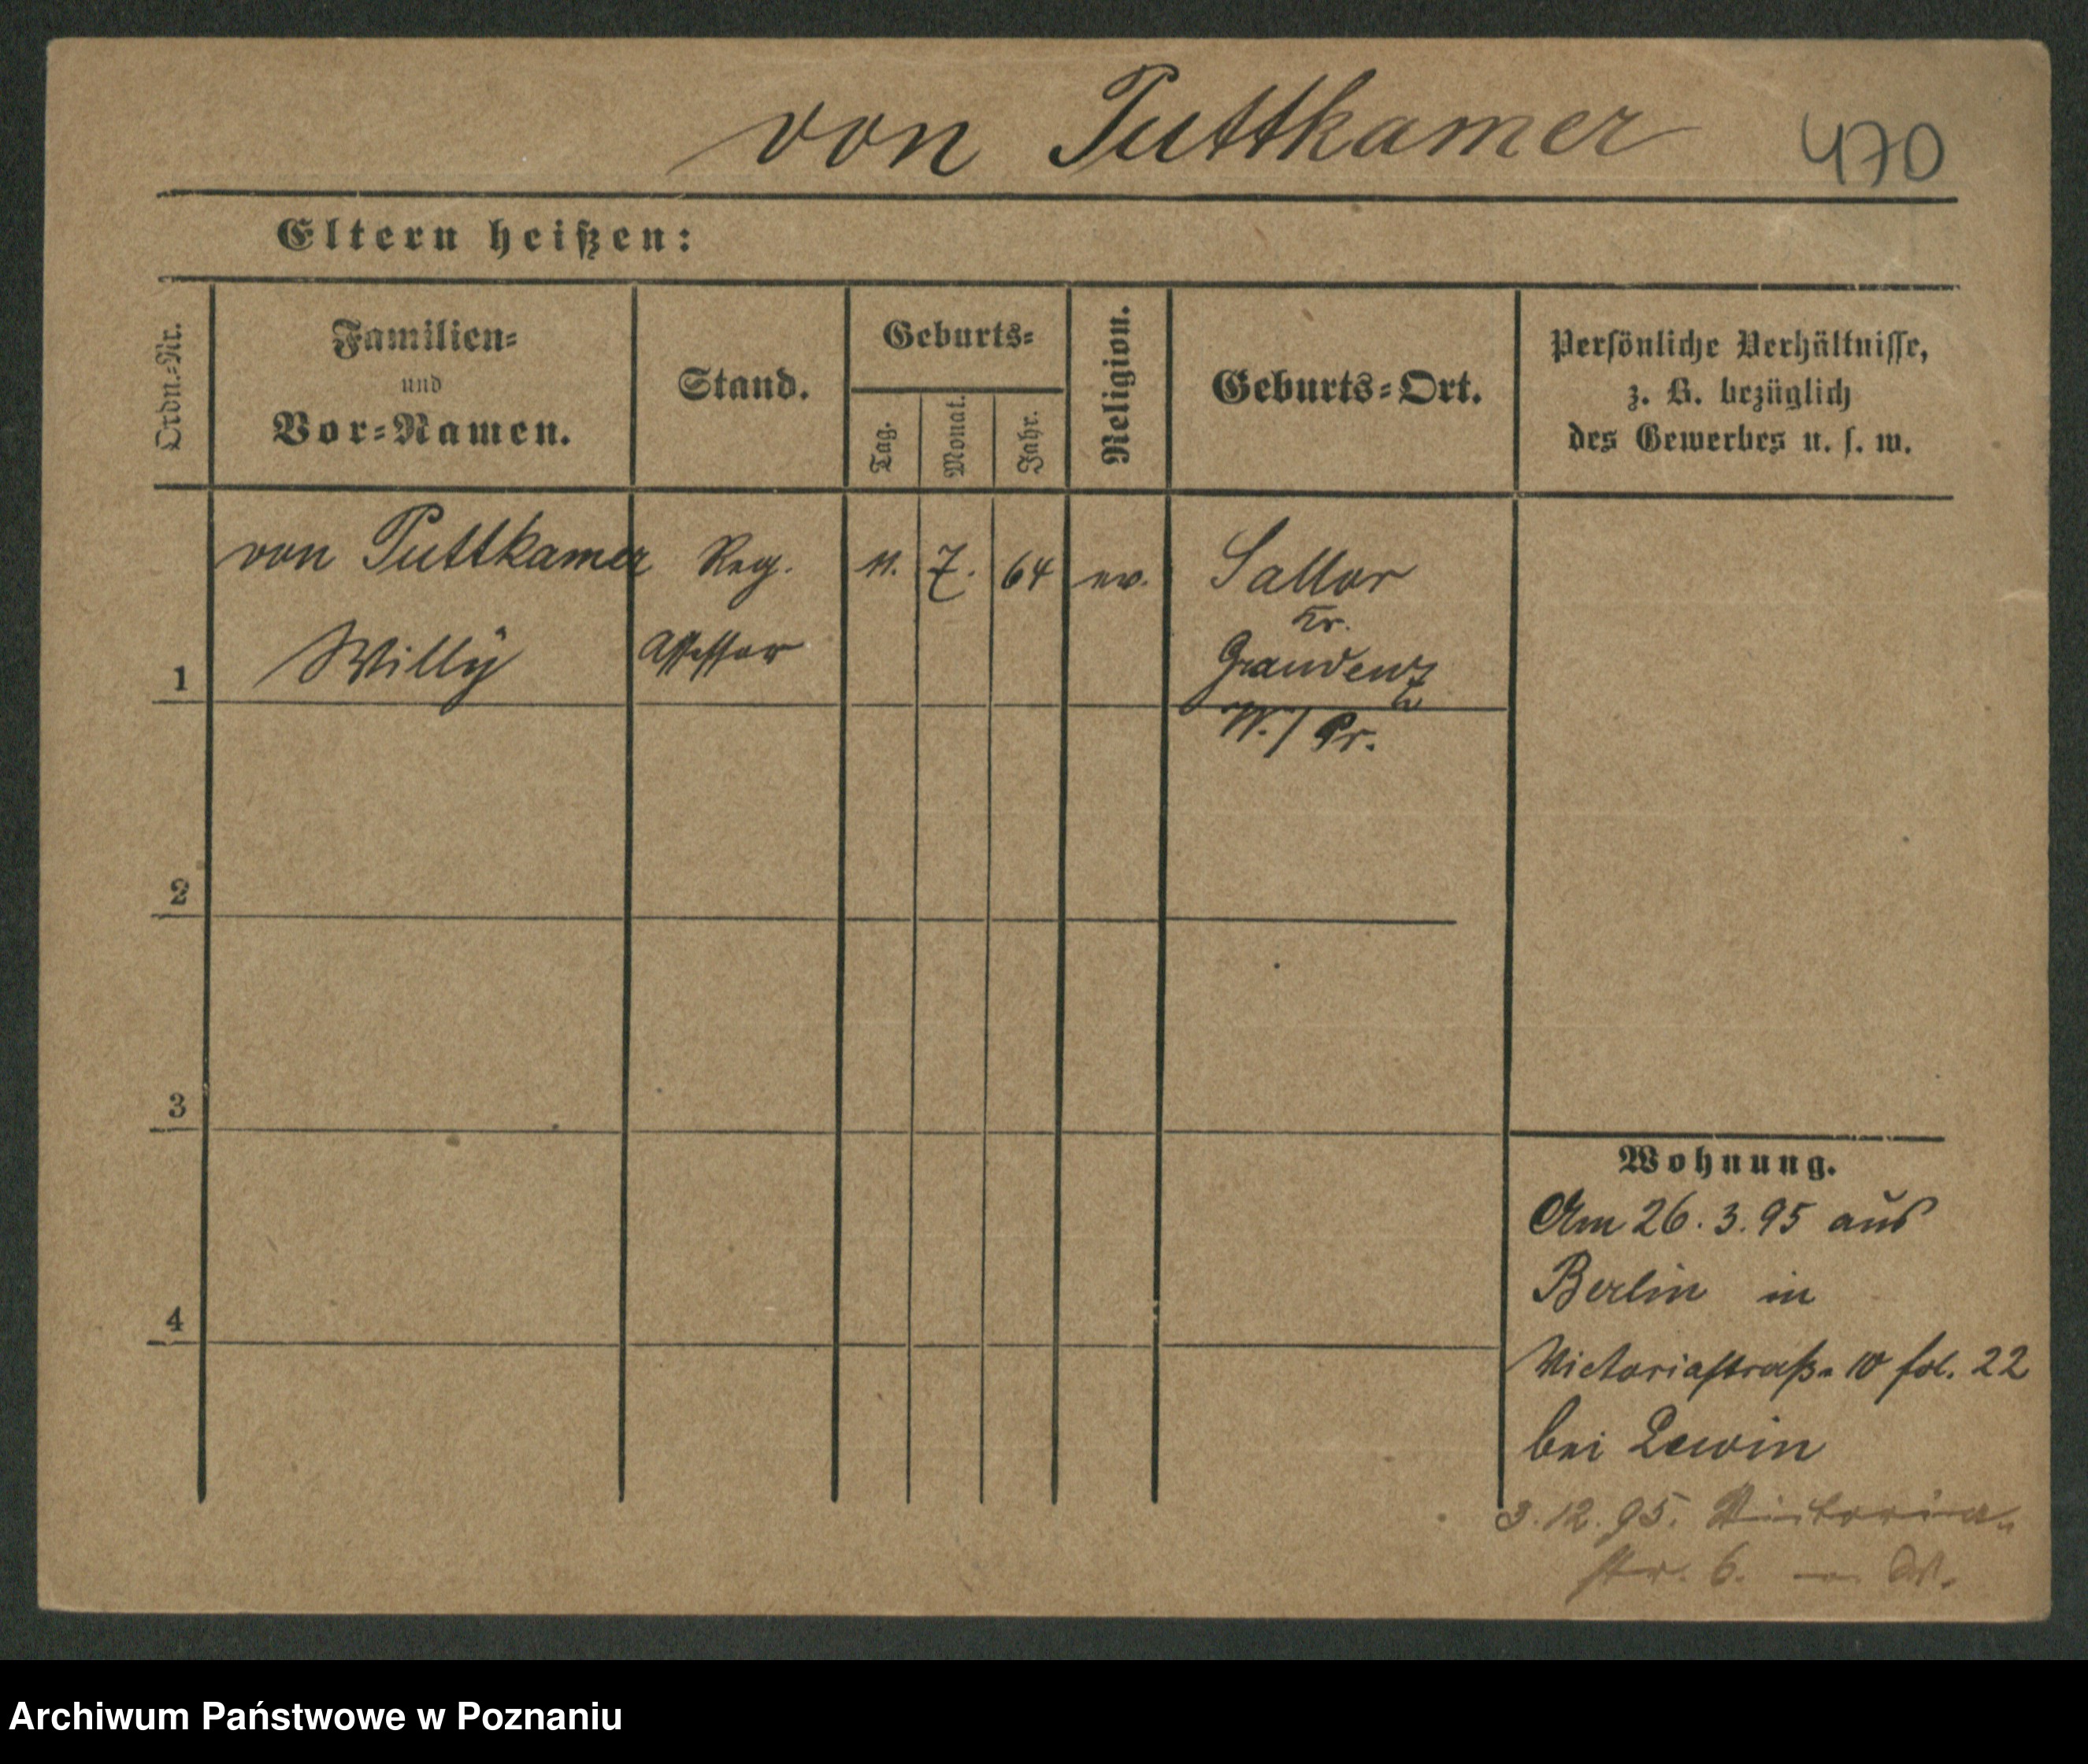 von Puttkamer 470
Eltern heißen:
Ordn.-Nr.
Familien-
und
Vor-Namen.
Stand.
Geburts-
Tag.
Monat.
Jahr.
Religion.
Geburts-Ort.
Persönliche Verhältnisse,
z. B. bezüglich
des Gewerbes u. s. w.
von Puttkamer Reg. 11. 7. 64 ev.
Kr.
1 Willÿ Assessor Graudenz
W./Pr.
2
3
4
Wohnung.
Am 26. 3. 95 aus
Berlin in
Victoriastraße 10 fol. 22
bei Lewin
3. 12. 95. Victoria-
str. 6.
Archiwum Państwowe w Poznaniu